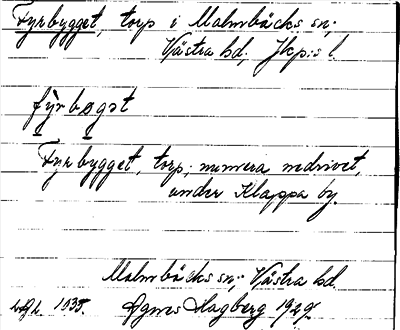 Fyrbygget, torp i Malmbäcks sn;
Västra hd, Jkp:s l.
fy̆rbøgət
Fyrbygget, torp, numera nedrivet,
under Klappa by.
Malmbäcks sn; Västra hd.
1935. Agnes Hagberg 1929